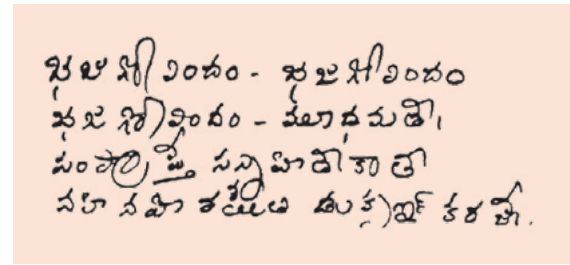 భజగోవిందం - భజగోవిందం
భజగోవిందం - మూఢమతే,
సంప్రాప్తే సన్నిహితేకాలే
నహి నహి రక్షతి డుకృఞ్ కరణే.